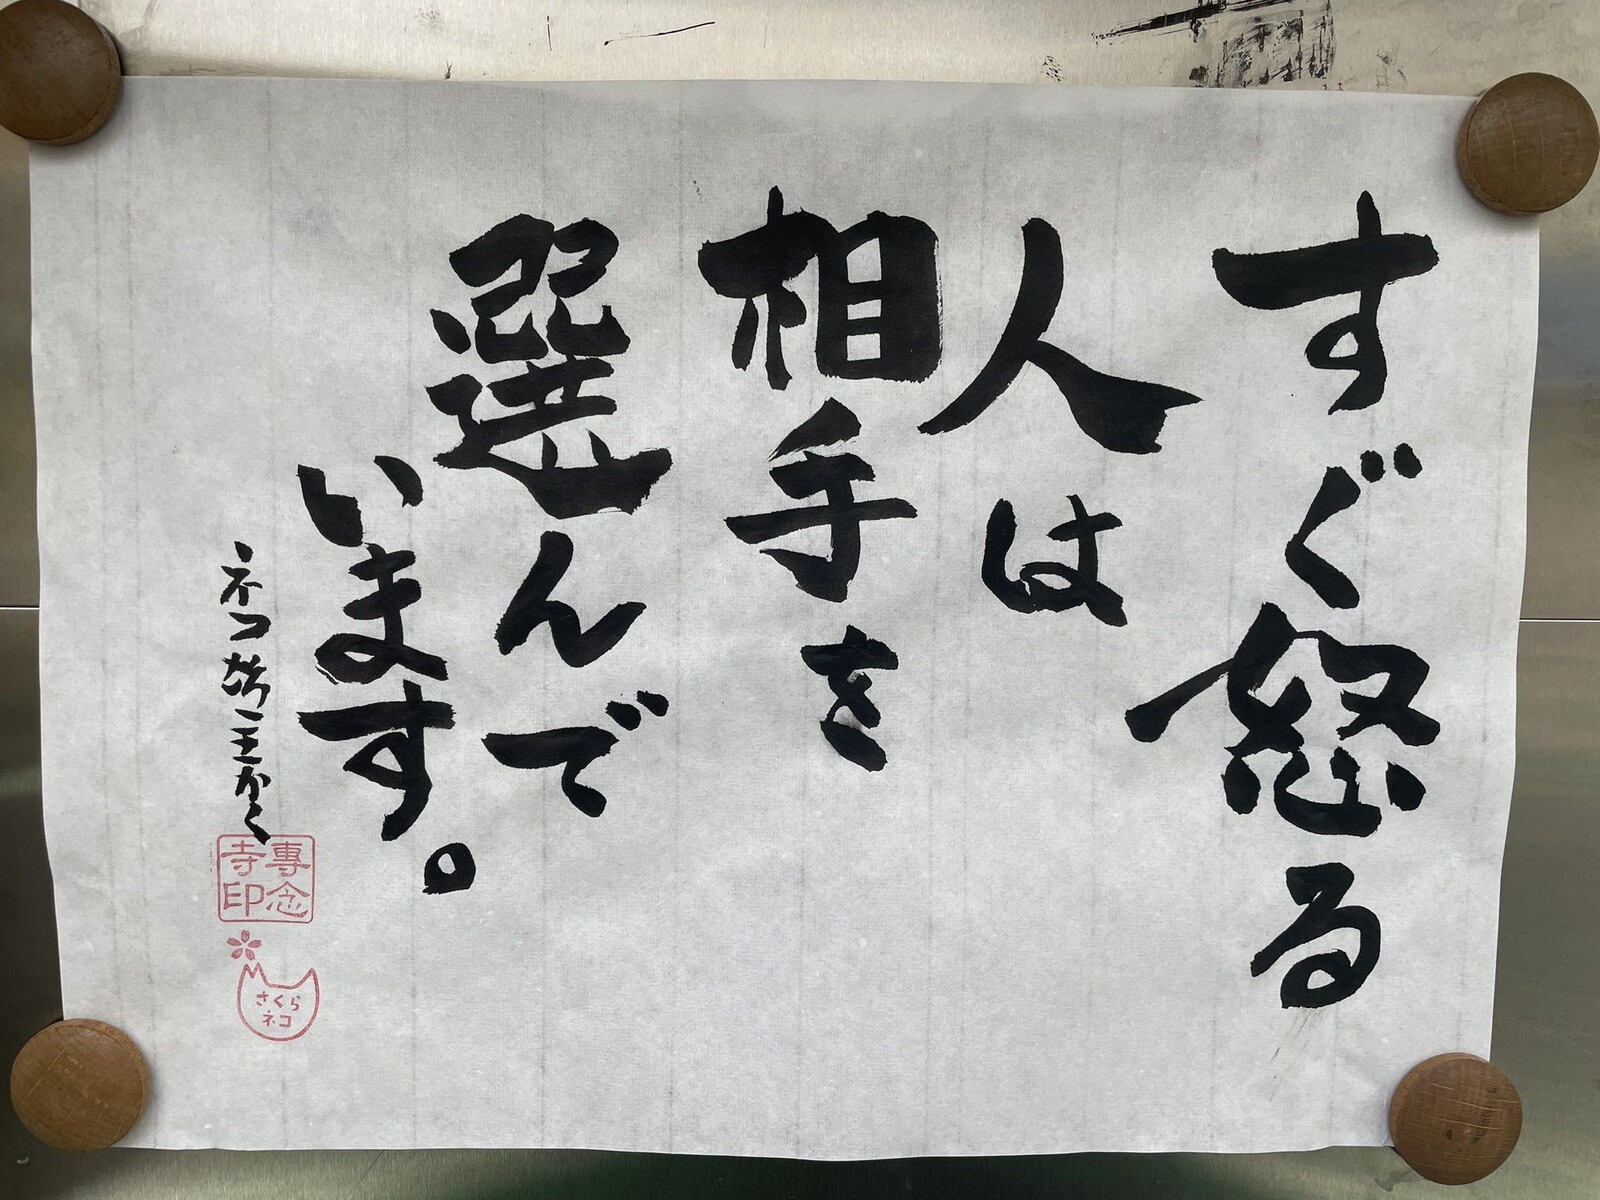 すぐ怒る
人は
相手を
選んで
います。
ネコ坊主かく
專念
寺印
さくら
ネコ